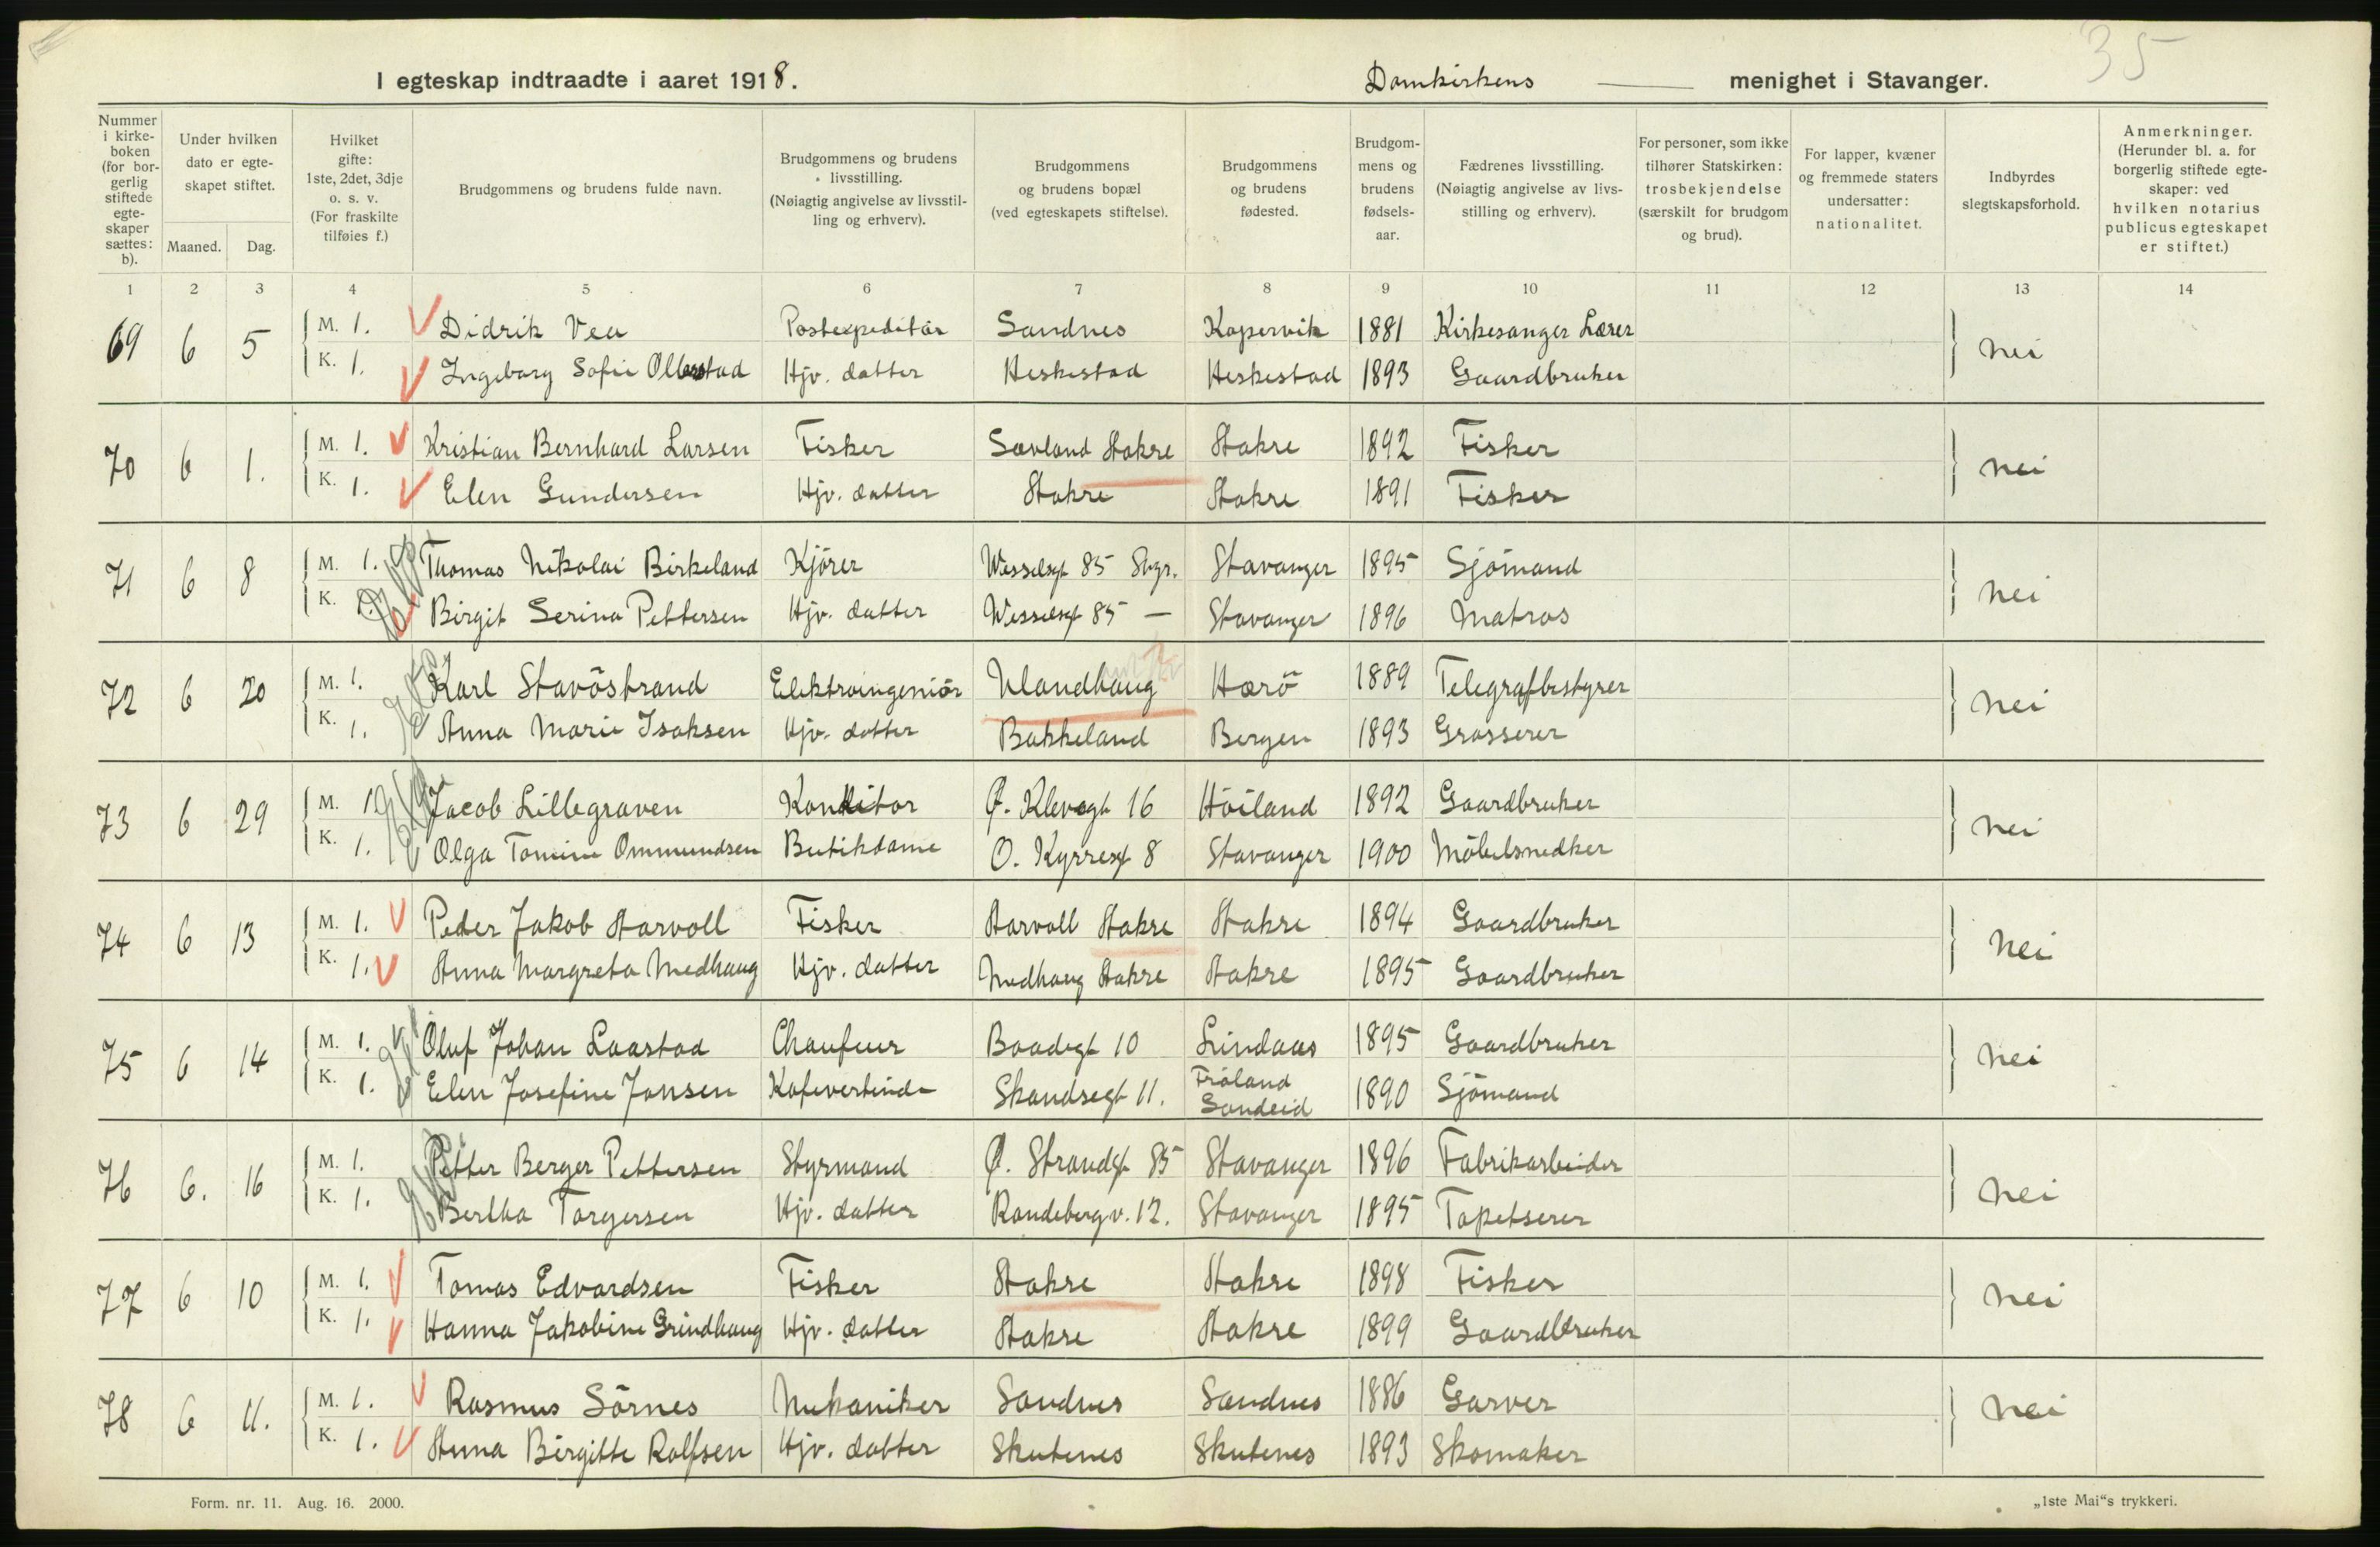 35
I egteskap indtraadte i aaret 1918. Domkirkens menighet i Stavanger.
Nummer i kirke-boken (for bor-gerlig stiftede egte-skaper sættes: b).
Under hvilken dato er egte-skapet stiftet.
Maaned. Dag.
Hvilket gifte: 1ste, 2det, 3dje o. s. v. (For fraskilte tilføies f.)
Brudgommens og brudens fulde navn.
Brudgommens og brudens livsstilling. (Nøiagtig angivelse av livsstil-ling og erhverv).
Brudgommens og brudens bopæl (ved egteskapets stiftelse).
Brudgommens og brudens fødested.
Brudgom-mens og brudens fødsels-aar.
Fædrenes livsstilling. (Nøiagtig angivelse av livs-stilling og erhverv).
For personer, som ikke tilhører Statskirken: trosbekjendelse (særskilt for brudgom og brud).
For lapper, kvæner og fremmede staters undersatter: nationalitet.
Indbyrdes slegtskapsforhold.
Anmerkninger. (Herunder bl. a. for borgerlig stiftede egte-skaper: ved hvilken notarius publicus egteskapet er stiftet.)
1 2 3 4 5 6 7 8 9 10 11 12 13 14
69 6 5 M. 1. Didrik Vea Postexpeditör Sandnes Kopervik 1881 Kirkesanger Lærer nei
K. 1. Ingeborg Sofie Ollestad Hjv. datter Heskestad Heskestad 1893 Gaardbruker
70 6 1. M. 1. Kristian Bernhard Larsen Fisker Sævland Aakre Aakre 1892 Fisker nei
K. 1. Elen Gundersen Hjv. datter Aakre Aakre 1891 Fisker
71 6 8 M. 1. Thomas Nikolai Birkeland Kjörer Wesselsgt 85 Svgr. Stavanger 1895 Sjömand nei
K. 1. Birgit Serina Pettersen Hjv. datter Wesselsgt 85 — Stavanger 1896 Matros
72 6 20 M. 1. Karl Stavöstrand Elektroingeniör Ulandhaug Harö 1889 Telegrafbestyrer nei
K. 1. Anna Marie Isaksen Hjv. datter Bakkeland Bergen 1893 Grosserer
73 6 29 M. 1. Jacob Lillegraven Konditor Ø. Klevegt 16 Höiland 1892 Gaardbruker nei
K. 1. Olga Tomine Ommundsen Butikdame O. Kyrresgt 8 Stavanger 1900 Möbelsnedker
74 6 13 M. 1. Peder Jakob Aarvoll Fisker Aarvoll Aakre Aakre 1894 Gaardbruker nei
K. 1. Anna Margreta Medhaug Hjv. datter Medhaug Aakre Aakre 1895 Gaardbruker
75 6 14 M. 1. Oluf Johan Laastad Chaufeur Baadsgt 10 Lindaas 1895 Gaardbruker nei
K. 1. Elen Josefine Jonsen Kafevertinde Skandsegt 11. Fröland Sandeid 1890 Sjömand
76 6. 16 M. 1. Petter Berger Pettersen Styrmand Ø. Strandgt 85 Stavanger 1896 Fabrikarbeider nei
K. 1. Bertha Torgersen Hjv. datter Randebergv. 12. Stavanger 1895 Tapetserer
77 6 10 M. 1. Tomas Edvardsen Fisker Aakre Aakre 1898 Fisker nei
K. 1. Hanna Jakobine Grindhaug Hjv. datter Aakre Aakre 1899 Gaardbruker
78 6 11. M. 1. Rasmus Sörnes Mekaniker Sandnes Sandnes 1886 Garver nei
K. 1. Anna Birgitte Rolfsen Hjv. datter Skutenes Skutenes 1893 Skomaker
Form. nr. 11. Aug. 16. 2000. „1ste Mai“s trykkeri.